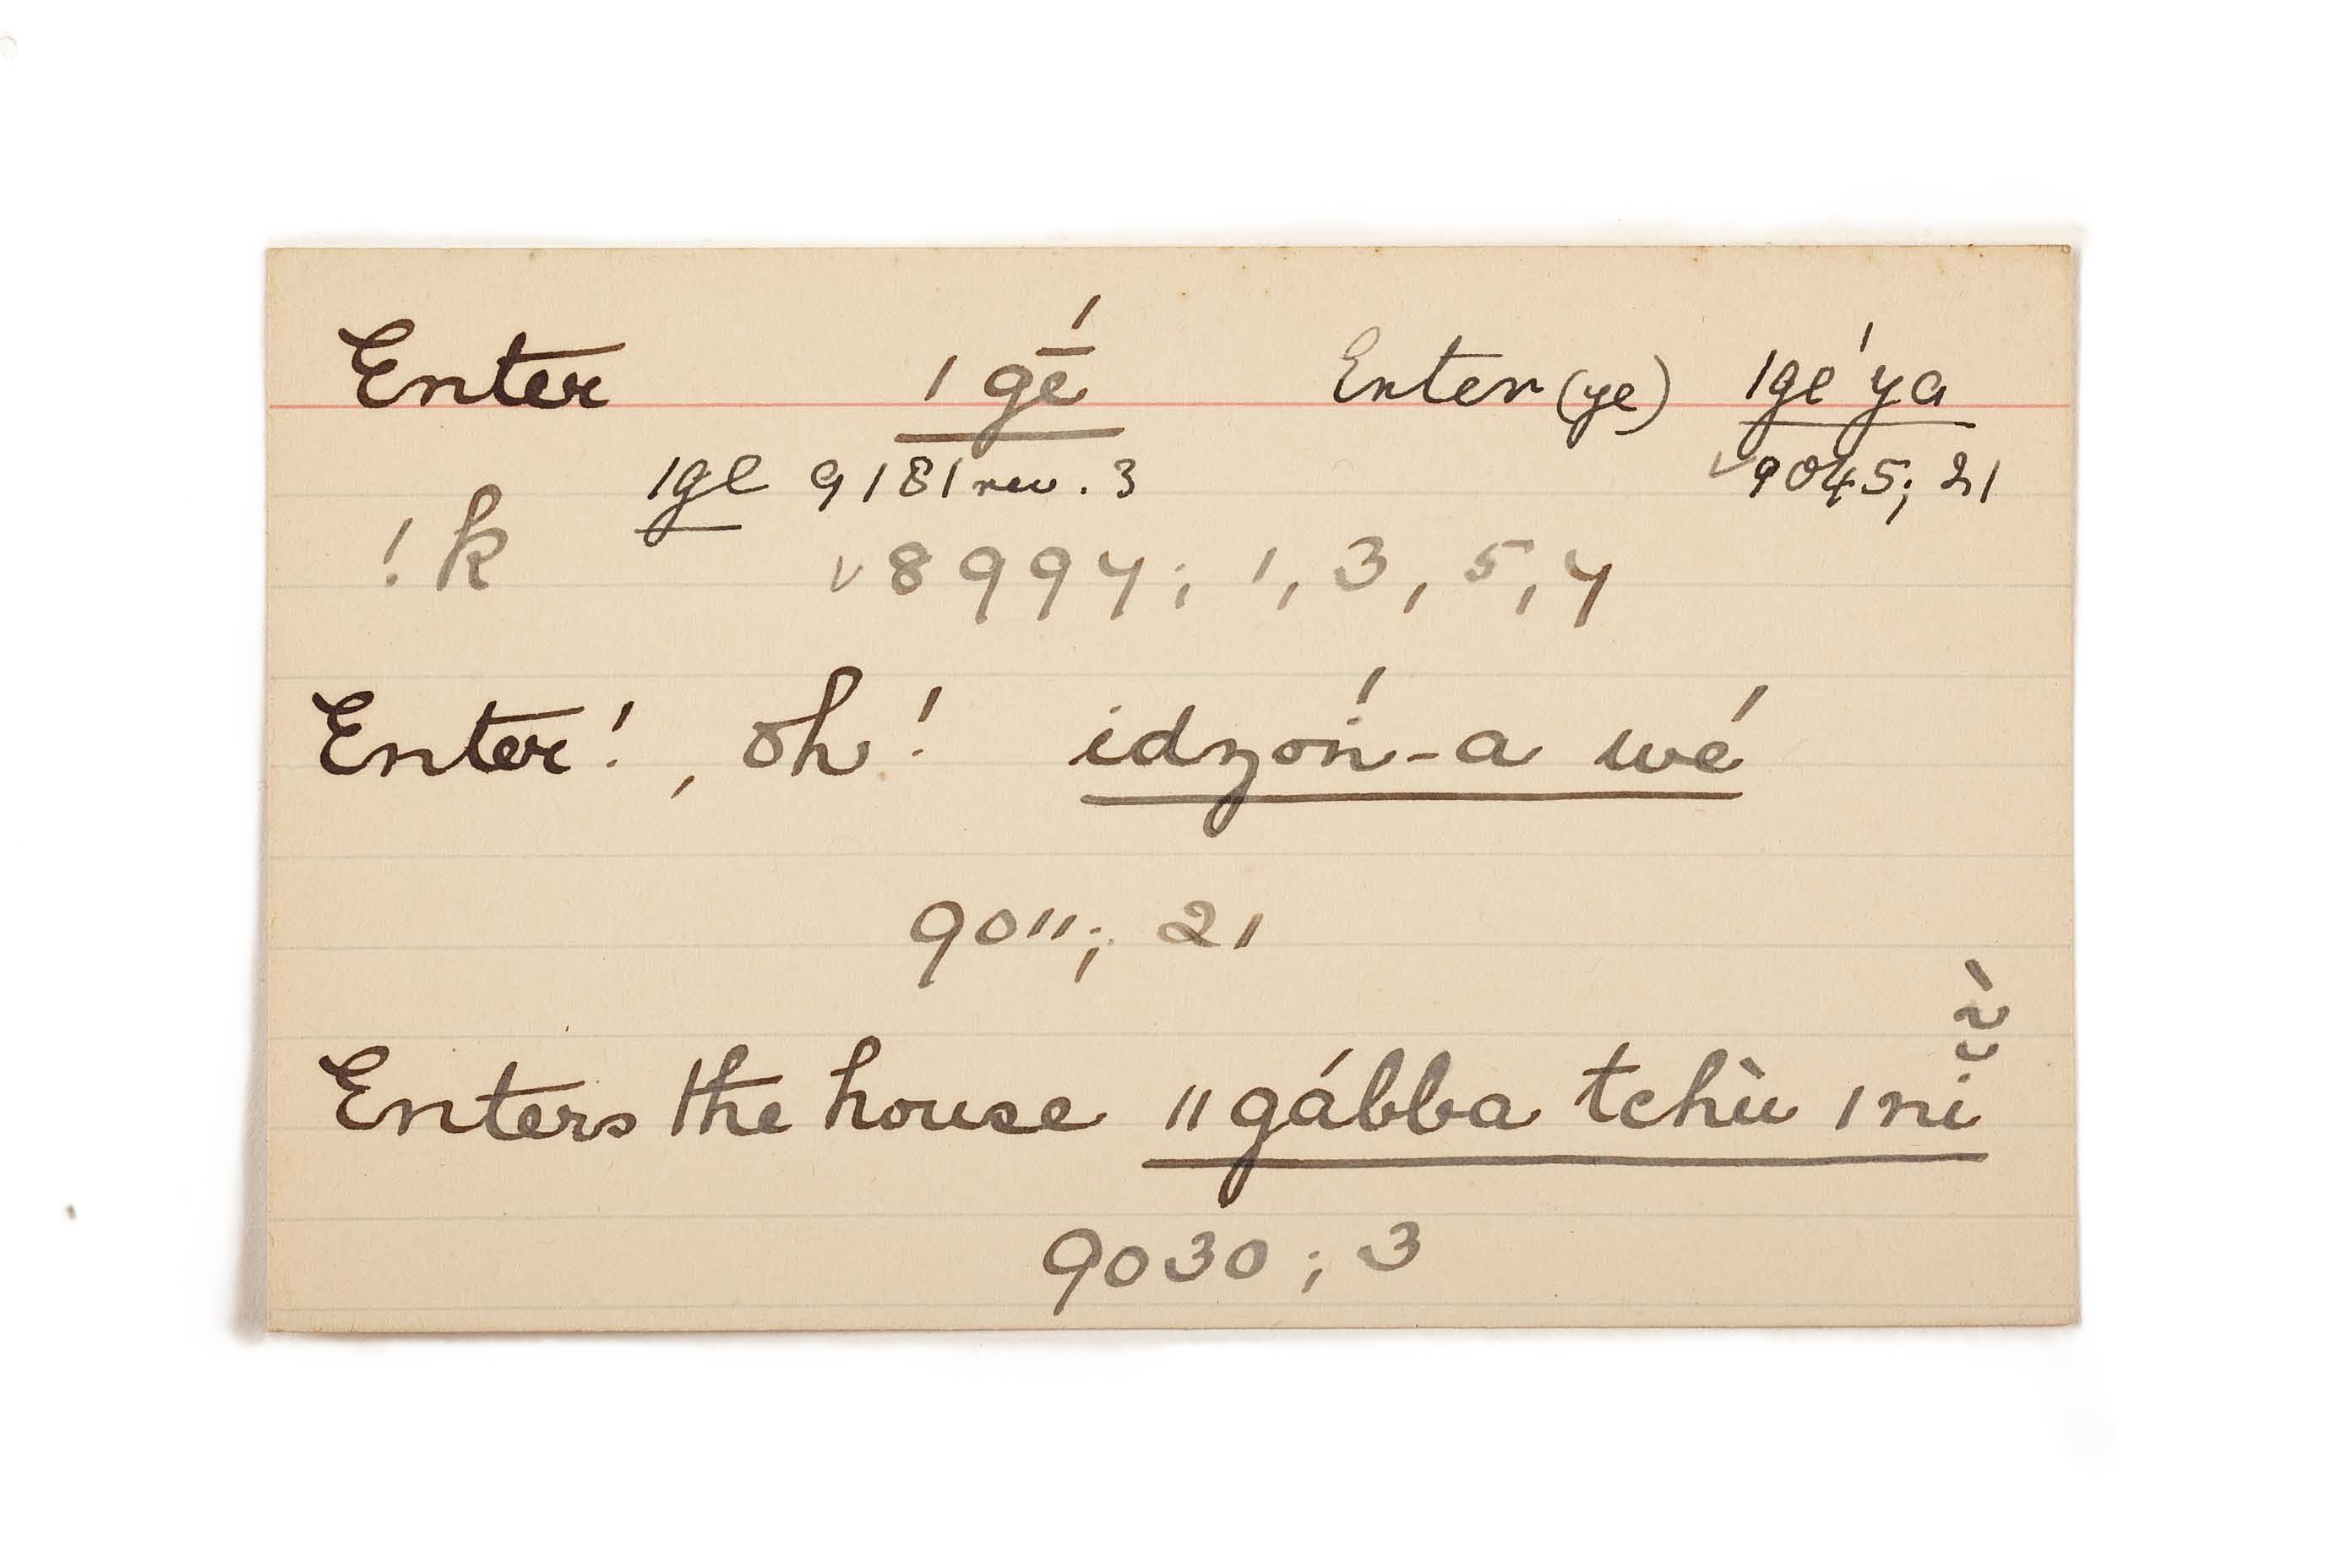 Enter ǀgḗ Enter (ye) ǀgé'ya
ǀge 9181 rev. 3 √9045; 21
!k √8997; 1, 3, 5, 7
Enter!, oh! idzoń-a wé
9011; 21
Enters the house ǁgábba tchù ǀnĭ̃̀
9030; 3